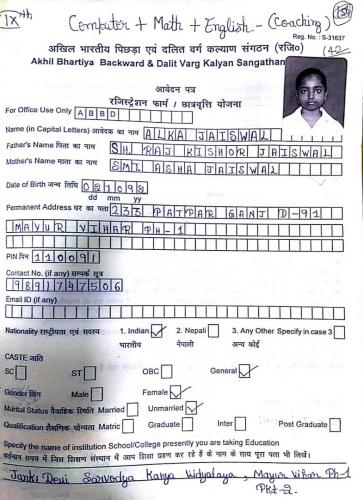 IXth
Computer + Math + English - (Coaching)
Reg. No. : S-31637
अखिल भारतीय पिछड़ा एवं दलित वर्ग कल्याण संगठन (रजि०)
Akhil Bhartiya Backward & Dalit Varg Kalyan Sangathan
आवेदन पत्र
रजिस्ट्रेशन फार्म / छात्रवृत्ति योजना
For Office Use Only A B B D
Name (in Capital Letters) आवेदक का नाम ALKA JAISWAL
Father's Name पिता का नाम SH. RAJ KISHOR JAISWAL
Mother's Name माता का नाम SMT. ASHA JAISWAL
Date of Birth जन्म तिथि 021098
dd mm yy
Permanent Address घर का पता 233 PATPAR GANJ D-91
MAYUR VIHAR PH-1
PIN पिन 110091
Contact No. (if any) सम्पर्क सूत्र
9891747506
Email ID (if any)
Nationality राष्ट्रीयता एवं सदस्य 1. Indian ✓ 2. Nepali 3. Any Other Specify in case 3
भारतीय नेपाली अन्य कोई
CASTE जाति
SC ST OBC General ✓
Gender लिंग Male Female ✓
Marital Status वैवाहिक स्थिति Married Unmarried ✓
Qualification शैक्षणिक योग्यता Matric Graduate Inter Post Graduate
Specify the name of institution School/College presently you are taking Education
वर्तमान समय में जिस शिक्षण संस्थान में आप शिक्षा ग्रहण कर रहे हैं के नाम के साथ पूरा पता भी लिखें।
Janki Devi Sarvodya Kanya Vidyalaya, Mayur Vihar Ph-1
Pkt-2.